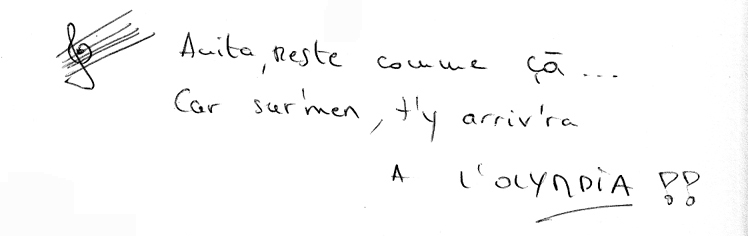 Anita, reste comme çā...
Car sur'men, t'y arriv'ra
A L'OLYMDiA !!